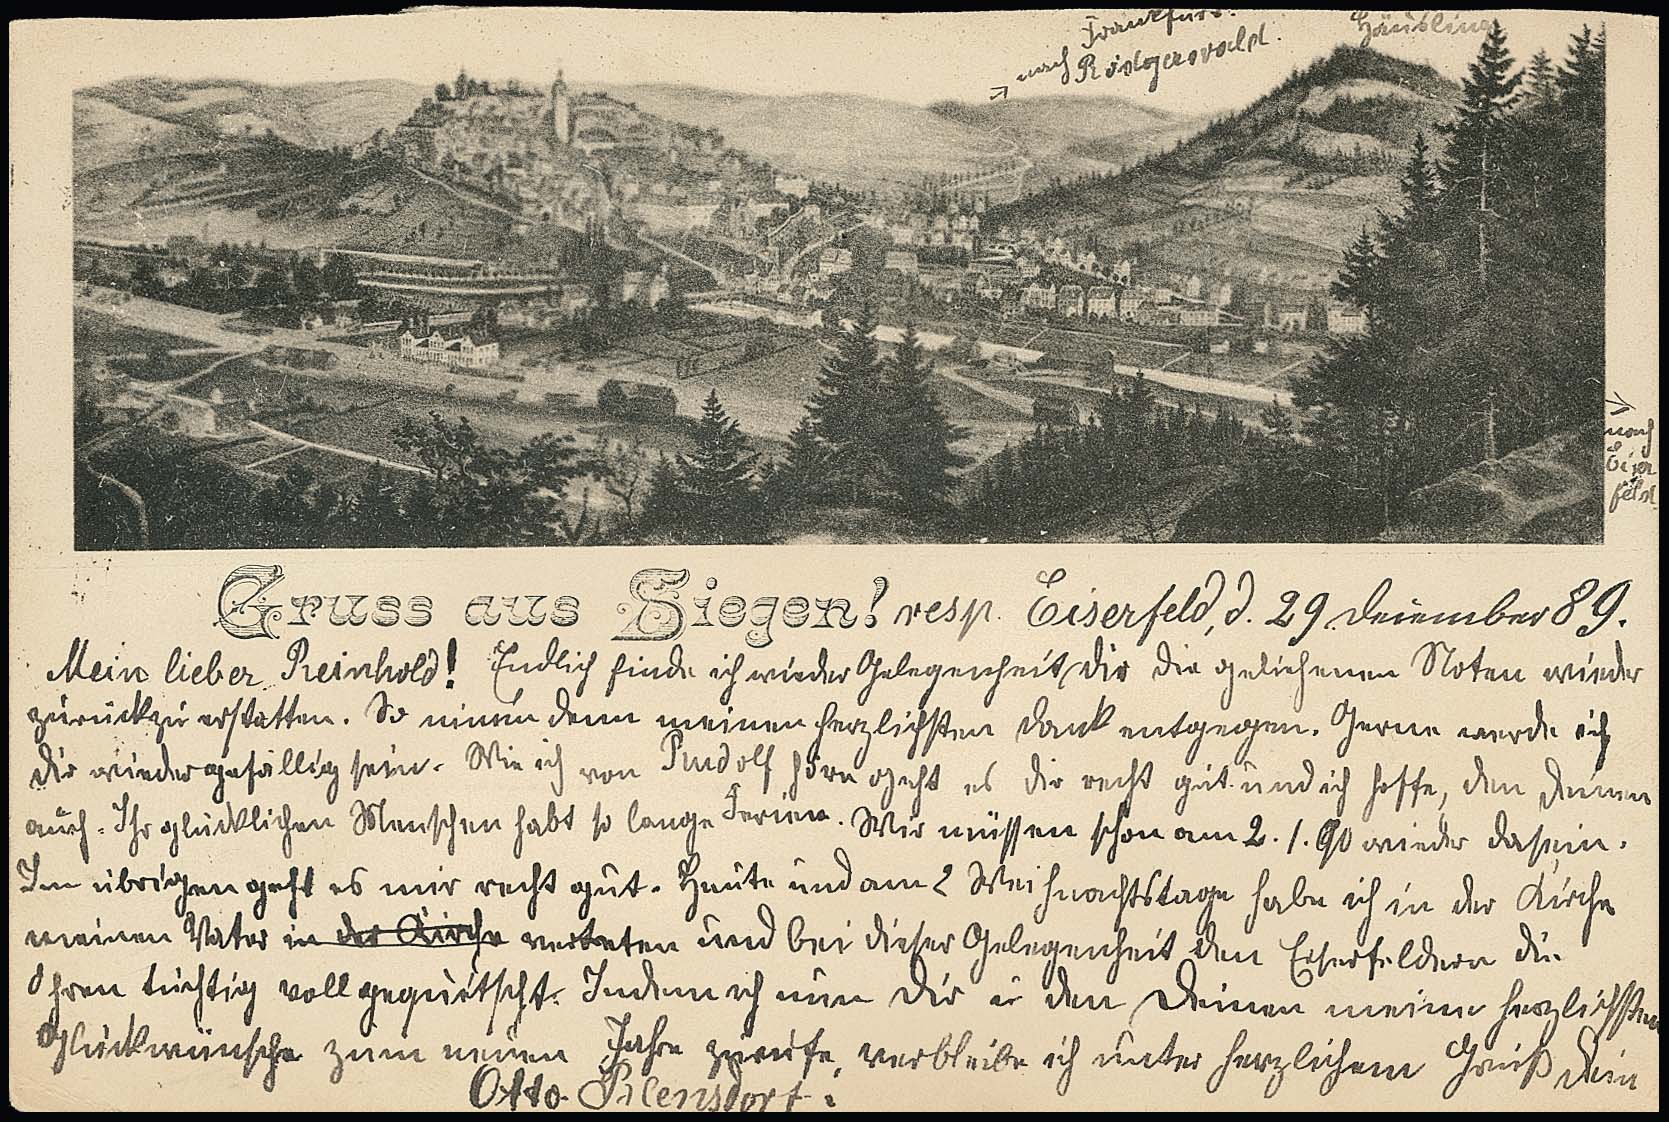 Frankfurt.
nach Rödgerwald.
Häusling
nach
Eiser
feld.
Gruss aus Siegen! resp. Eiserfeld, d. 29 Dezember 89.
Mein lieber Reinhold! Endlich finde ich wieder Gelegenheit, Dir die geliehenen Noten wieder
zurückzuerstatten. So nimm denn meinen herzlichsten Dank entgegen. Gerne werde ich
Dir wieder gefällig sein. Wie ich von Rudolf höre geht es Dir recht gut und ich hoffe, den Deinen
auch. Ihr glücklichen Menschen habt so lange Ferien. Wir müssen schon am 2. 1. 90 wieder da sein.
Im übrigen geht es mir recht gut. Heute und am 2 Weihnachtstage habe ich in der Kirche
meinen Vater in der Kirche vertreten und bei dieser Gelegenheit den Eiserfeldern die
Ohren tüchtig voll gequitscht. Indem ich nun Dir u den Deinen meine herzlichsten
Glückwünsche zum neuen Jahre zurufe, verbleibe ich unter herzlichem Gruß Dein
Otto